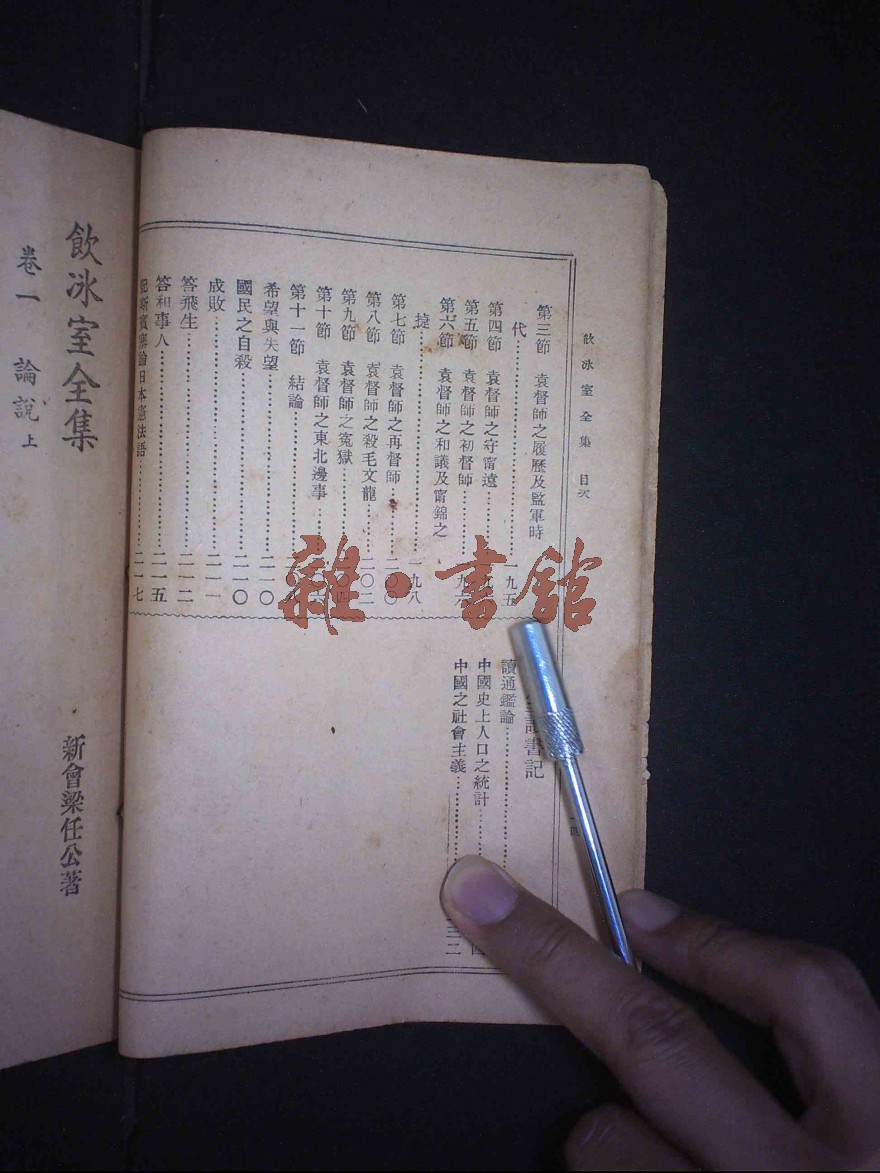 飲冰室全集　目次
一四
第三節　袁督師之履歷及監軍時
代……一九五
第四節　袁督師之守甯遠……
第五節　袁督師之初督師……九六
第六節　袁督師之和議及甯錦之
捷……一九八
第七節　袁督師之再督師……二〇〇
第八節　袁督師之殺毛文龍……二〇二
第九節　袁督師之冤獄……四
第十節　袁督師之東北邊事……
第十一節　結論……
希望與失望……二一〇
國民之自殺……二一〇
成敗……二一一
答飛生……二一二
答和事人……二一五
記斯賓塞論日本憲法語……二一七
書記
讀通鑑論……
中國史上人口之統計……四
中國之社會主義……三二
飲冰室全集
新會梁任公著
卷一　論說上
雜·書館